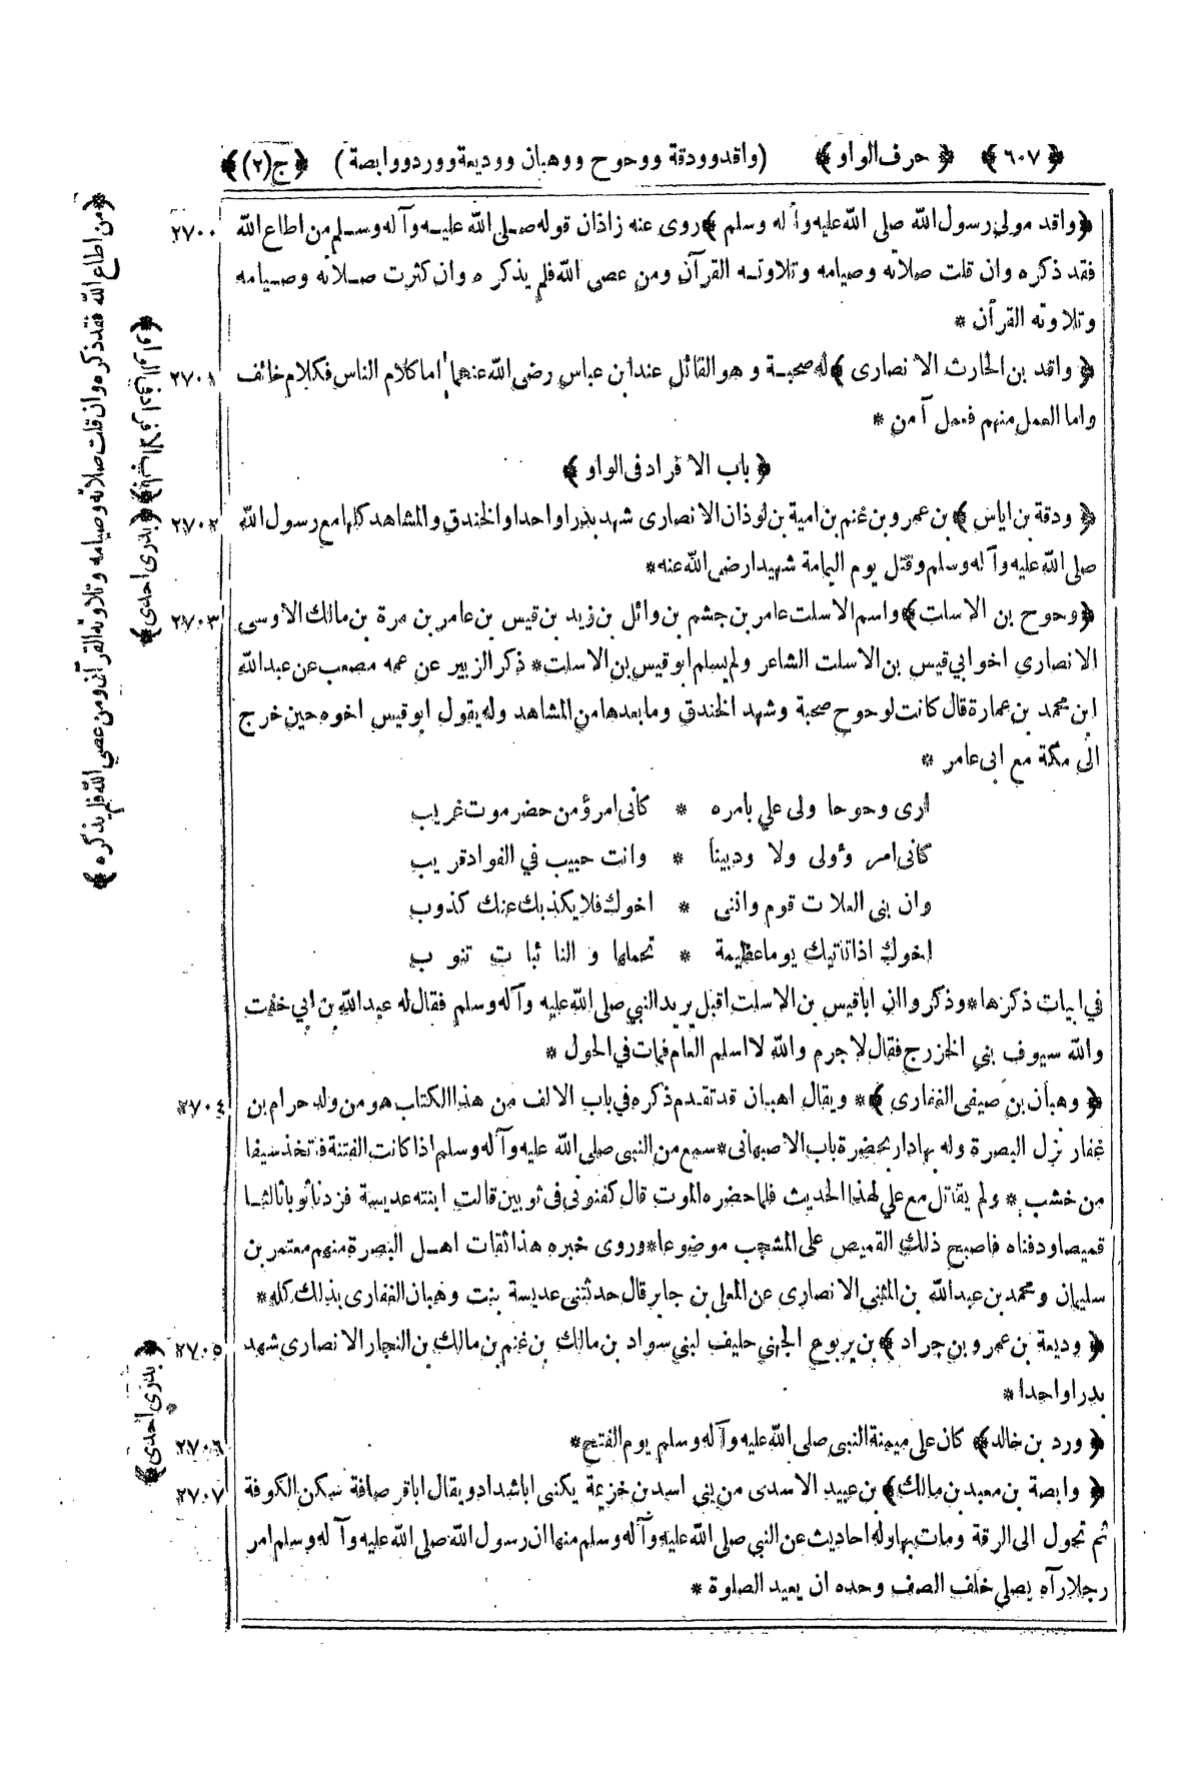 ﴿ ٦٠٧ ﴾ ﴿ حرف الواو ﴾ (واقد وودقة ووحوح ووهبان ووديعة وورد ووابصة) ﴿ ج (٢) ﴾
﴿ واقد مولى رسول الله صلى الله عليه وآله وسلم ﴾ روى عنه زاذان قوله صلى الله عليه وآله وسلم من اطاع الله ٢٧٠٠
فقد ذكره وان قلت صلاته وصيامه وتلاوته القرآن ومن عصى الله فلم يذكره وان كثرت صلاته وصيامه
وتلاوته القرآن *
﴿ واقد بن الحارث الانصارى ﴾ له صحبة وهو القائل عند ابن عباس رضى الله عنهما اما كلام الناس فكلام خائف ٢٧٠١
واما العمل منهم فعمل آمن *
﴿ باب الافراد فى الواو ﴾
﴿ ودقة بن اياس ﴾ بن عمرو بن غنم بن امية بن لوذان الانصارى شهد بدرا واحدا والخندق والمشاهد كلها مع رسول الله ٢٧٠٢
صلى الله عليه وآله وسلم وقتل يوم اليمامة شهيدا رضى الله عنه *
﴿ وحوح بن الاسلت ﴾ واسم الاسلت عامر بن جشم بن وائل بن زيد بن قيس بن عامر بن مرة بن مالك الاوسى ٢٧٠٣
الانصارى اخو ابي قيس بن الاسلت الشاعر ولم يسلم ابو قيس بن الاسلت * ذكر الزبير عن عمه مصعب عن عبد الله
ابن محمد بن عمارة قال كانت لوحوح صحبة وشهد الخندق وما بعدها من المشاهد وله يقول ابو قيس اخوه حين خرج
الى مكة مع ابى عامر *
ارى وحوحا ولى علي بامره * كأنى امرؤ من حضرموت غريب
كأنى امرء ولى ولا ود بيننا * وانت حبيب في الفواد قريب
وان بنى العلات قوم واننى * اخوك فلا يكذبك عنك كذوب
اخوك اذا تاتيك يوما عظيمة * تحملها والنائبات تنوب
في ابيات ذكرها * وذكروا ان ابا قيس بن الاسلت اقبل يريد النبي صلى الله عليه وآله وسلم فقال له عبد الله بن ابي خفت
والله سيوف بني الخزرج فقال لا جرم والله لا اسلم العام فمات في الحول *
﴿ وهبان بن صيفى الغفارى ﴾ * ويقال اهبان قد تقدم ذكره في باب الالف من هذا الكتاب هو من ولد حرام بن ٢٧٠٤
غفار نزل البصرة وله بها دار بحضرة باب الاصبهانى * سمع من النبى صلى الله عليه وآله وسلم اذا كانت الفتنة فاتخذ سيفا
من خشب * ولم يقاتل مع علي لهذا الحديث فلما حضره الموت قال كفنونى فى ثوبين قالت ابنته عديسة فزدنا ثوبا ثالثا
قميصا ودفناه فاصبح ذلك القميص على المشجب موضوعا * وروى خبره هذا ثقات اهل البصرة منهم معتمر بن
سليمان ومحمد بن عبد الله بن المثنى الانصارى عن المعلى بن جابر قال حدثتنى عديسة بنت وهبان الغفارى بذلك كله *
﴿ وديعة بن عمرو بن جراد ﴾ بن يربوع الجهني حليف لبني سواد بن مالك بن غنم بن مالك بن النجار الانصارى شهد ٢٧٠٥
بدرا واحدا *
﴿ ورد بن خالد ﴾ كان على ميمنة النبى صلى الله عليه وآله وسلم يوم الفتح * ٢٧٠٦
﴿ وابصة بن معبد بن مالك ﴾ بن عبيد الاسدى من بنى اسد بن خزيمة يكنى ابا شداد ويقال ابا قرصافة سكن الكوفة ٢٧٠٧
ثم تحول الى الرقة ومات بها وله احاديث عن النبي صلى الله عليه وآله وسلم منها ان رسول الله صلى الله عليه وآله وسلم امر
رجلا رآه يصلي خلف الصف وحده ان يعيد الصلوة *
﴿ من اطاع الله فقد ذكره وان قلت صلاته وصيامه وتلاوته القرآن ومن عصى الله فلم يذكره ﴾
﴿ بدرى احدى ﴾
﴿ بدرى احدى ﴾